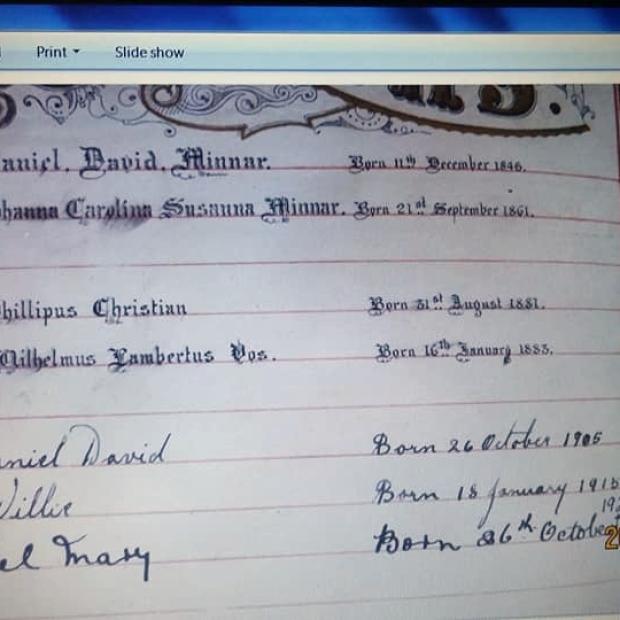 Print Slide show
aniel. David. Minnar. Born 11th December 1846.
ohanna Carolina Susanna Minnar. Born 21st September 1861.
hillipus Christian Born 31st August 1881.
Wilhelmus Lambertus Vos. Born 16th January 1883.
niel David Born 26 October 1905
Willie Born 18 January
el Mary Born 26th October